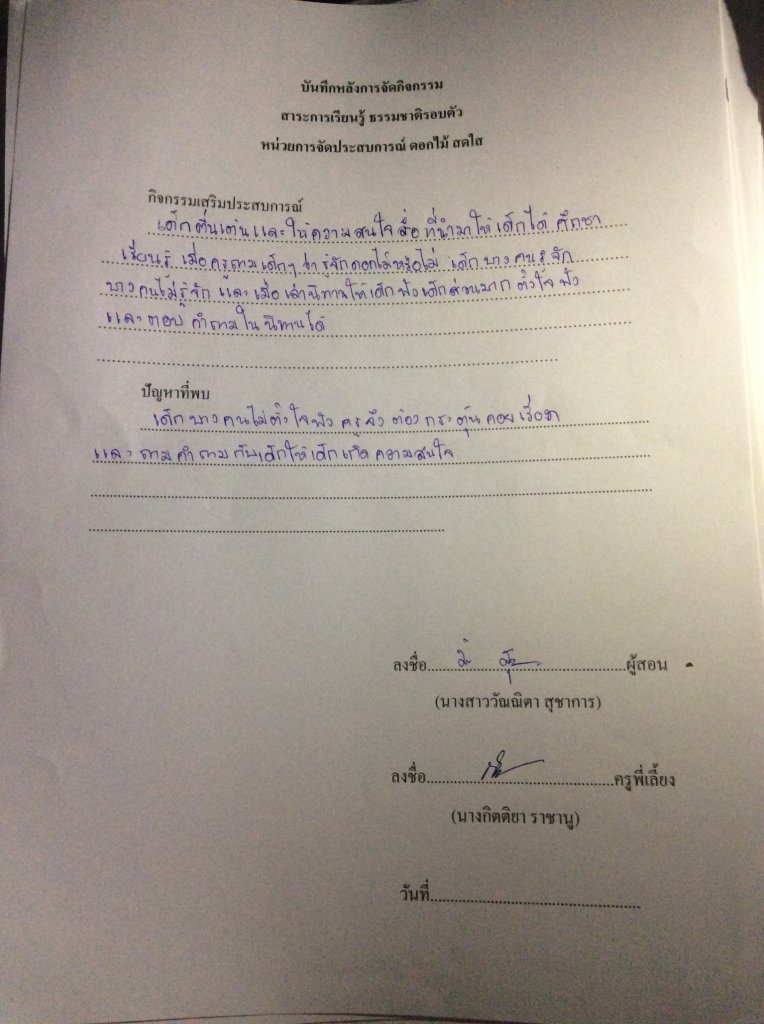 บันทึกหลังการจัดกิจกรรม
สาระการเรียนรู้ ธรรมชาติรอบตัว
หน่วยการจัดประสบการณ์ ดอกไม้ สดใส
กิจกรรมเสริมประสบการณ์
เด็กตื่นเต้นและให้ความสนใจสื่อที่นำมาให้เด็กได้ศึกษา
เรียนรู้ เมื่อครูถามเด็กๆ ว่ารู้จักดอกไม้หรือไม่ เด็กบางคนรู้จัก
บางคนไม่รู้จัก และเมื่อเล่านิทานให้เด็กฟังเด็กส่วนมากตั้งใจฟัง
และตอบคำถามในนิทานได้
ปัญหาที่พบ
เด็กบางคนไม่ตั้งใจฟังครูจึงต้องกระตุ้นคอยเรียก
และถามคำถามกับเด็กให้เด็กเกิดความสนใจ
ลงชื่อ..............................ผู้สอน
(นางสาววัณณิตา สุชาการ)
ลงชื่อ..............................ครูพี่เลี้ยง
(นางกิตติยา ราชานู)
วันที่..............................